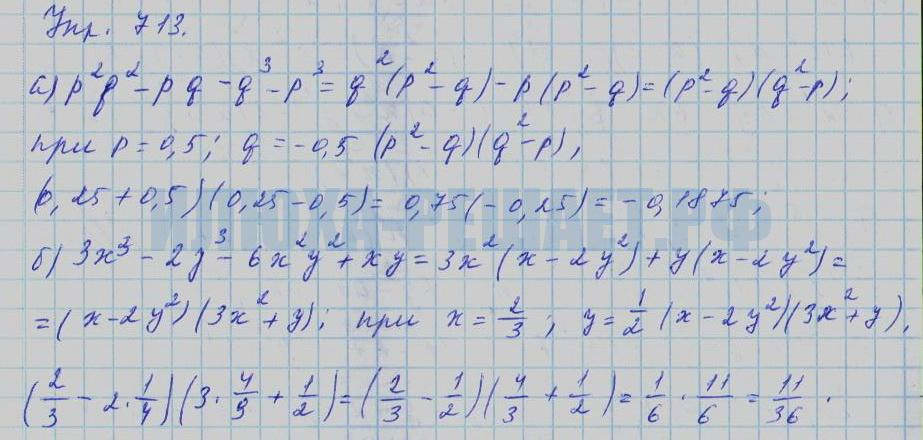 Упр. 713.
а) p²q² - pq - q³ - p³ = q²(p² - q) - p(p² - q) = (p² - q)(q² - p);
при p = 0,5; q = -0,5 (p² - q)(q² - p),
(0,25 + 0,5)(0,25 - 0,5) = 0,75(-0,25) = -0,1875;
ИЛЮХА-РЕШАЕТ.РФ
б) 3x³ - 2y³ - 6x²y² + xy = 3x²(x - 2y²) + y(x - 2y²) =
= (x - 2y²)(3x² + y); при x = 2/3; y = 1/2 (x - 2y²)(3x² + y),
(2/3 - 2·1/4)(3·4/9 + 1/2) = (2/3 - 1/2)(4/3 + 1/2) = 1/6 · 11/6 = 11/36.